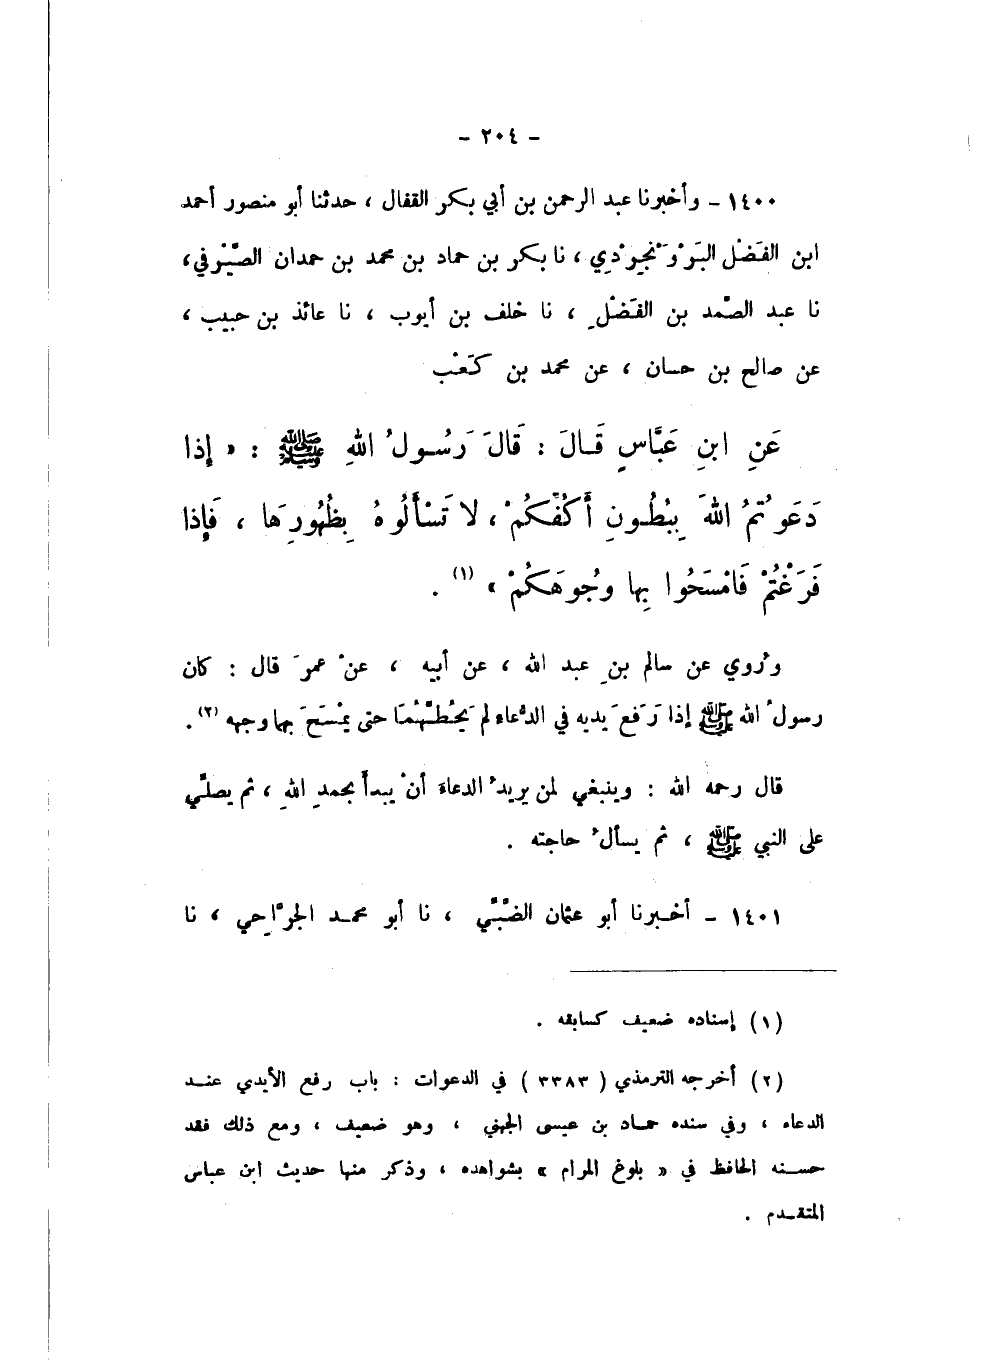 - ٢٠٤ -
١٤٠٠ - وأخبرنا عبد الرحمن بن أبي بكر القفال ، حدثنا أبو منصور أحمد
ابن الفَضْل البَرْوَنْجِرْدِي ، نا بكر بن حماد بن محمد بن حمدان الصَّيْرفي ،
نا عبد الصَّمد بن الفَضْلِ ، نا خلف بن أيوب ، نا عائذ بن حبيب ،
عن صالح بن حسان ، عن محمد بن كَعْب
عَنِ ابنِ عَبَّاسٍ قَالَ : قَالَ رَسُولُ اللهِ ﷺ : « إِذا
دَعَوْتُمُ اللهَ بِبُطُونِ أَكُفِّكُمْ ، لا تَسْأَلُوهُ بِظُهُورِهَا ، فَإِذا
فَرَغْتُمْ فَامْسَحُوا بِها وجُوهَكُمْ » (١) .
ورُوي عن سالم بنِ عبد الله ، عن أبيه ، عنْ عمرَ قال : كان
رسولُ الله ﷺ إذا رَفعَ يديه في الدُّعاء لم يَحُطَّهُمَا حتى يمْسَحَ بهما وجهه (٢) .
قال رحمه الله : وينبغي لمن يريدُ الدعاءَ أنْ يبدأَ بحمدِ اللهِ ، ثم يصلَّي
على النبي ﷺ ، ثم يسألُ حاجته .
١٤٠١ - أخبرنا أبو عثمان الضَّبِّي ، نا أبو محمد الجرَّاحِي ، نا
(١) إسناده ضعيف كسابقه .
(٢) أخرجه الترمذي ( ٣٣٨٣ ) في الدعوات : باب رفع الأيدي عند
الدعاء ، وفي سنده حماد بن عيسى الجهني ، وهو ضعيف ، ومع ذلك فقد
حسنه الحافظ في « بلوغ المرام » بشواهده ، وذكر منها حديث ابن عباس
المتقدم .